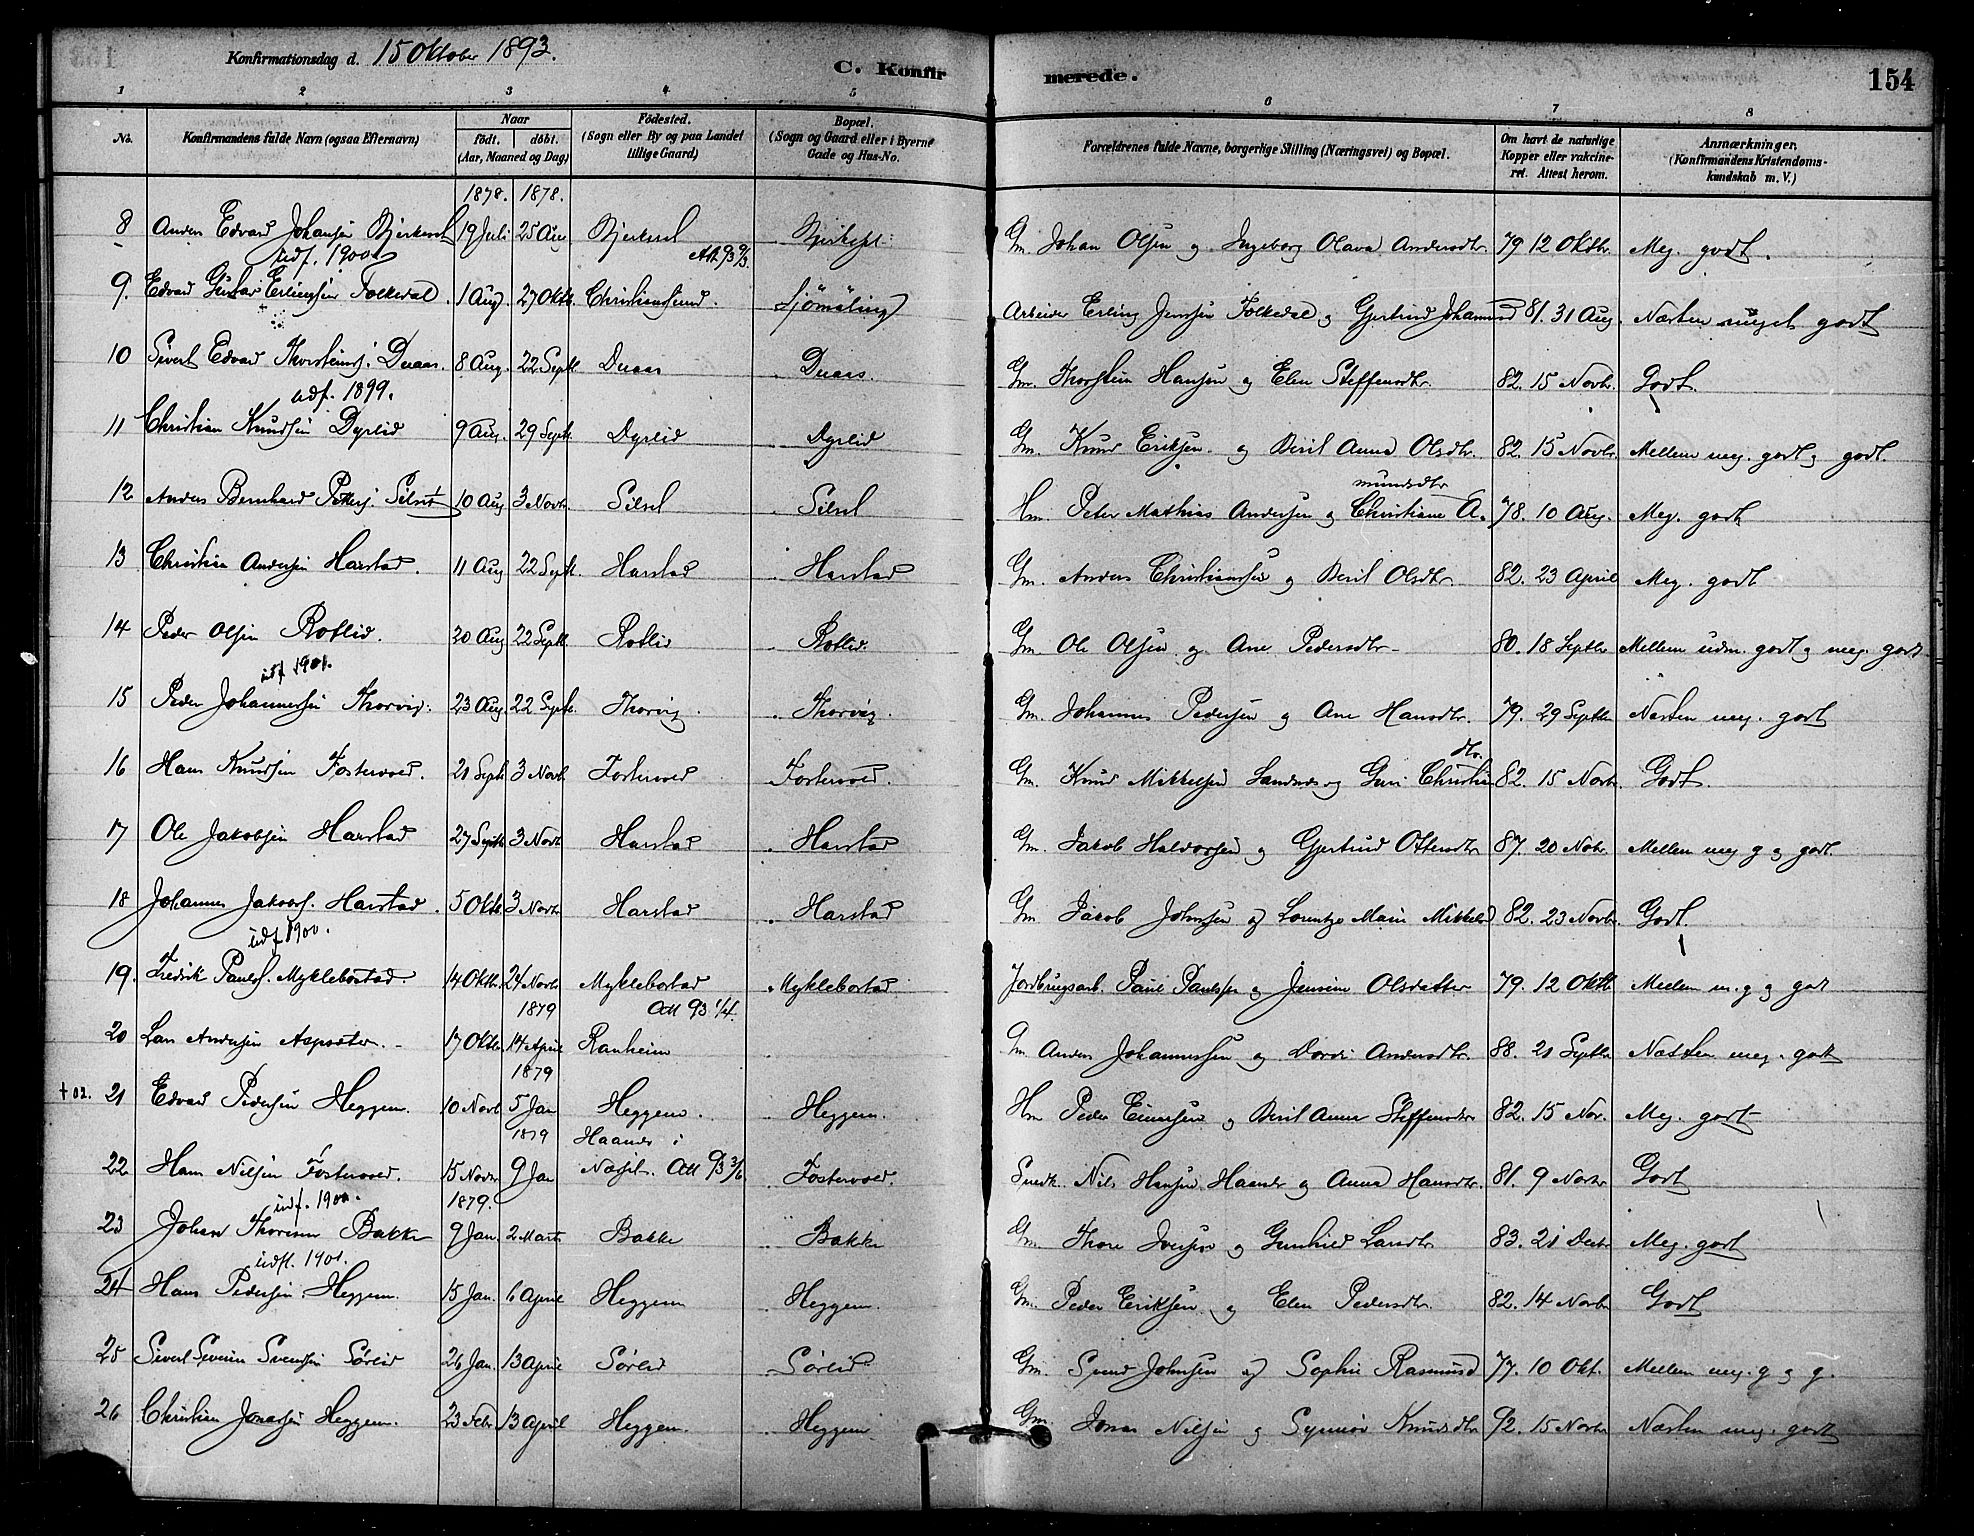 Konfirmationsdag d. 15 Oktober 1893.
C. Konfirmerede.
154
1 2 3 4 5 6 7 8
No. Konfirmandens fulde Navn (ogsaa Efternavn) Naar født. døbt. (Aar, Maaned og Dag) Födested. (Sogn eller By og paa Landet tillige Gaard) Bopæl. (Sogn og Gaard eller i Byerne Gade og Hus-No. Forældrenes fulde Navne, borgerlige Stilling (Næringsvei) og Bopæl. Om havt de naturlige Kopper eller vakcineret. Attest herom. Anmærkninger. (Konfirmandens Kristendomskundskab m. V.)
1878. 1878.
8 Anders Edvard Johansen 19 Juli 25 Aug Gm. Johan Olsen og Ingeborg Olava Andersdtr. 79 12 Oktbr. Meg. godt.
udf. 1900 Att. 93
9. Edvard Gustav Erlingsen Folkedal. 1 Aug. 27 Oktb. Christiansund. Sjömæling Arbeider Erling Jenssen Folkedal og Gjertrud Johannesd 81. 31 Aug. Næsten meget godt
10 Sivert Edvard Thorsteins. Duaas. 8 Aug. 22 Septb Duaas Duaas. Gm. Thorstein Hansen og Elen Steffensdtr. 82. 15 Novbr. Godt.
udf. 1899.
11 Christian Knudsen Dyrlid 9 Aug. 29 Septb. Dyrlid Dyrlid Gm. Knud Eriksen og Beril Anna Olsdtr. 82. 15 Novbr. Mellem meg. godt og godt.
12 Anders Bernhard Petters. Silset 10 Aug 3 Novb. Silset Silset Hm. Peter Mathias Andersen og Christiane A. mundsdtr 78. 10 Aug. Meg. godt
13 Christian Andersen Harstad. 11 Aug 22 Septb. Harstad Harstad Gm. Anders Christiansen og Beril Olsdtr. 82. 23 April Meg. godt
14 Peder Olsen Rotlid. 20 Aug 22 Septb. Rotlid Rotlid. Gm. Ole Olsen og Ane Pedersdtr. 80. 18 Septbr Mellem udm. godt og meg. godt
udf 1901.
15 Peder Johannessen Thorvig. 23 Aug. 22 Septb. Thorvig. Thorvig. Gm. Johannes Pedersen og Ane Hansdtr. 79. 29 Septbr Næsten meg. godt
16 Hans Knudsen Fostervold. 21 Septb 3 Novb. Fostervold Fostervold. Gm. Knud Mikkelsen Sandnes og Guri Christiansdtr. 82. 15 Novbr. Godt.
17 Ole Jakobsen Harstad 27 Septb 3 Novb Harstad Harstad Gm. Jakob Halvorsen og Gjertrud Ottersdtr 87. 20 Nobr. Mellem meg g og godt.
18 Johannes Jakobs. Harstad. 5 Oktb 3 Novbr Harstad Harstad Gm. Jacob Johnsen og Lorentze Marie Mikkelsd 82. 23 Novbr. Godt.
udf 1900.
19. Fredrik Pauls. Myklebostad. 14 Oktbr. 24 Novbr Myklebostad Myklebostad Jordbrugsarb. Paul Paulsen og Jensine Olsdatter 79. 12 Oktb. Mellem m. g og godt
1879 Att 93 1/4.
20 Lars Andersen Aspseter. 17 Oktbr. 14 April Ranheim Gm Anders Johannessen og Dordi Andersdtr. 88. 21 Septbr. Næsten meg. godt
1879
† 02. 21 Edvard Pedersen Heggem. 10 Novb 5 Jan Heggem. Heggem. Hm Peder Einersen og Beril Anne Steffensdtr 82. 15 Nov. Meg. godt
1879 Haanes i
22 Hans Nilsen Fostervold. 15 Novbr 9 Jan Næsset. Att 93 3/6 Fostervold. Snedk. Nils Hansen Haanes og Anna Hansdtr. 81. 9 Novbr Godt
udf. 1900. 1879.
23 Johan Thoresen Bakke 9 Jan. 2 Marts Bakke Bakke Gm. Thore Iversen og Gunhild Larsdtr 83. 21 Decbr Meg. godt
udfl. 1901.
24 Hans Pedersen Heggem. 15 Jan. 6 April Heggem Heggem. Gm. Peder Eriksen og Elen Pedersdtr. 82. 14 Novbr Godt
25 Sivert Severin Svendsen Sørlid 26 Jan. 13 April Sørlid Sørlid Gm. Svend Johnsen og Sophie Rasmusd 77. 10 Okt. Mellem meg. g og g.
26 Christian Jonassen Heggem. 23 Febr 13 April Heggem. Heggem Gm. Jonas Nilsen og Synnøv Knudsdtr 92. 15 Novbr Næsten meg. godt